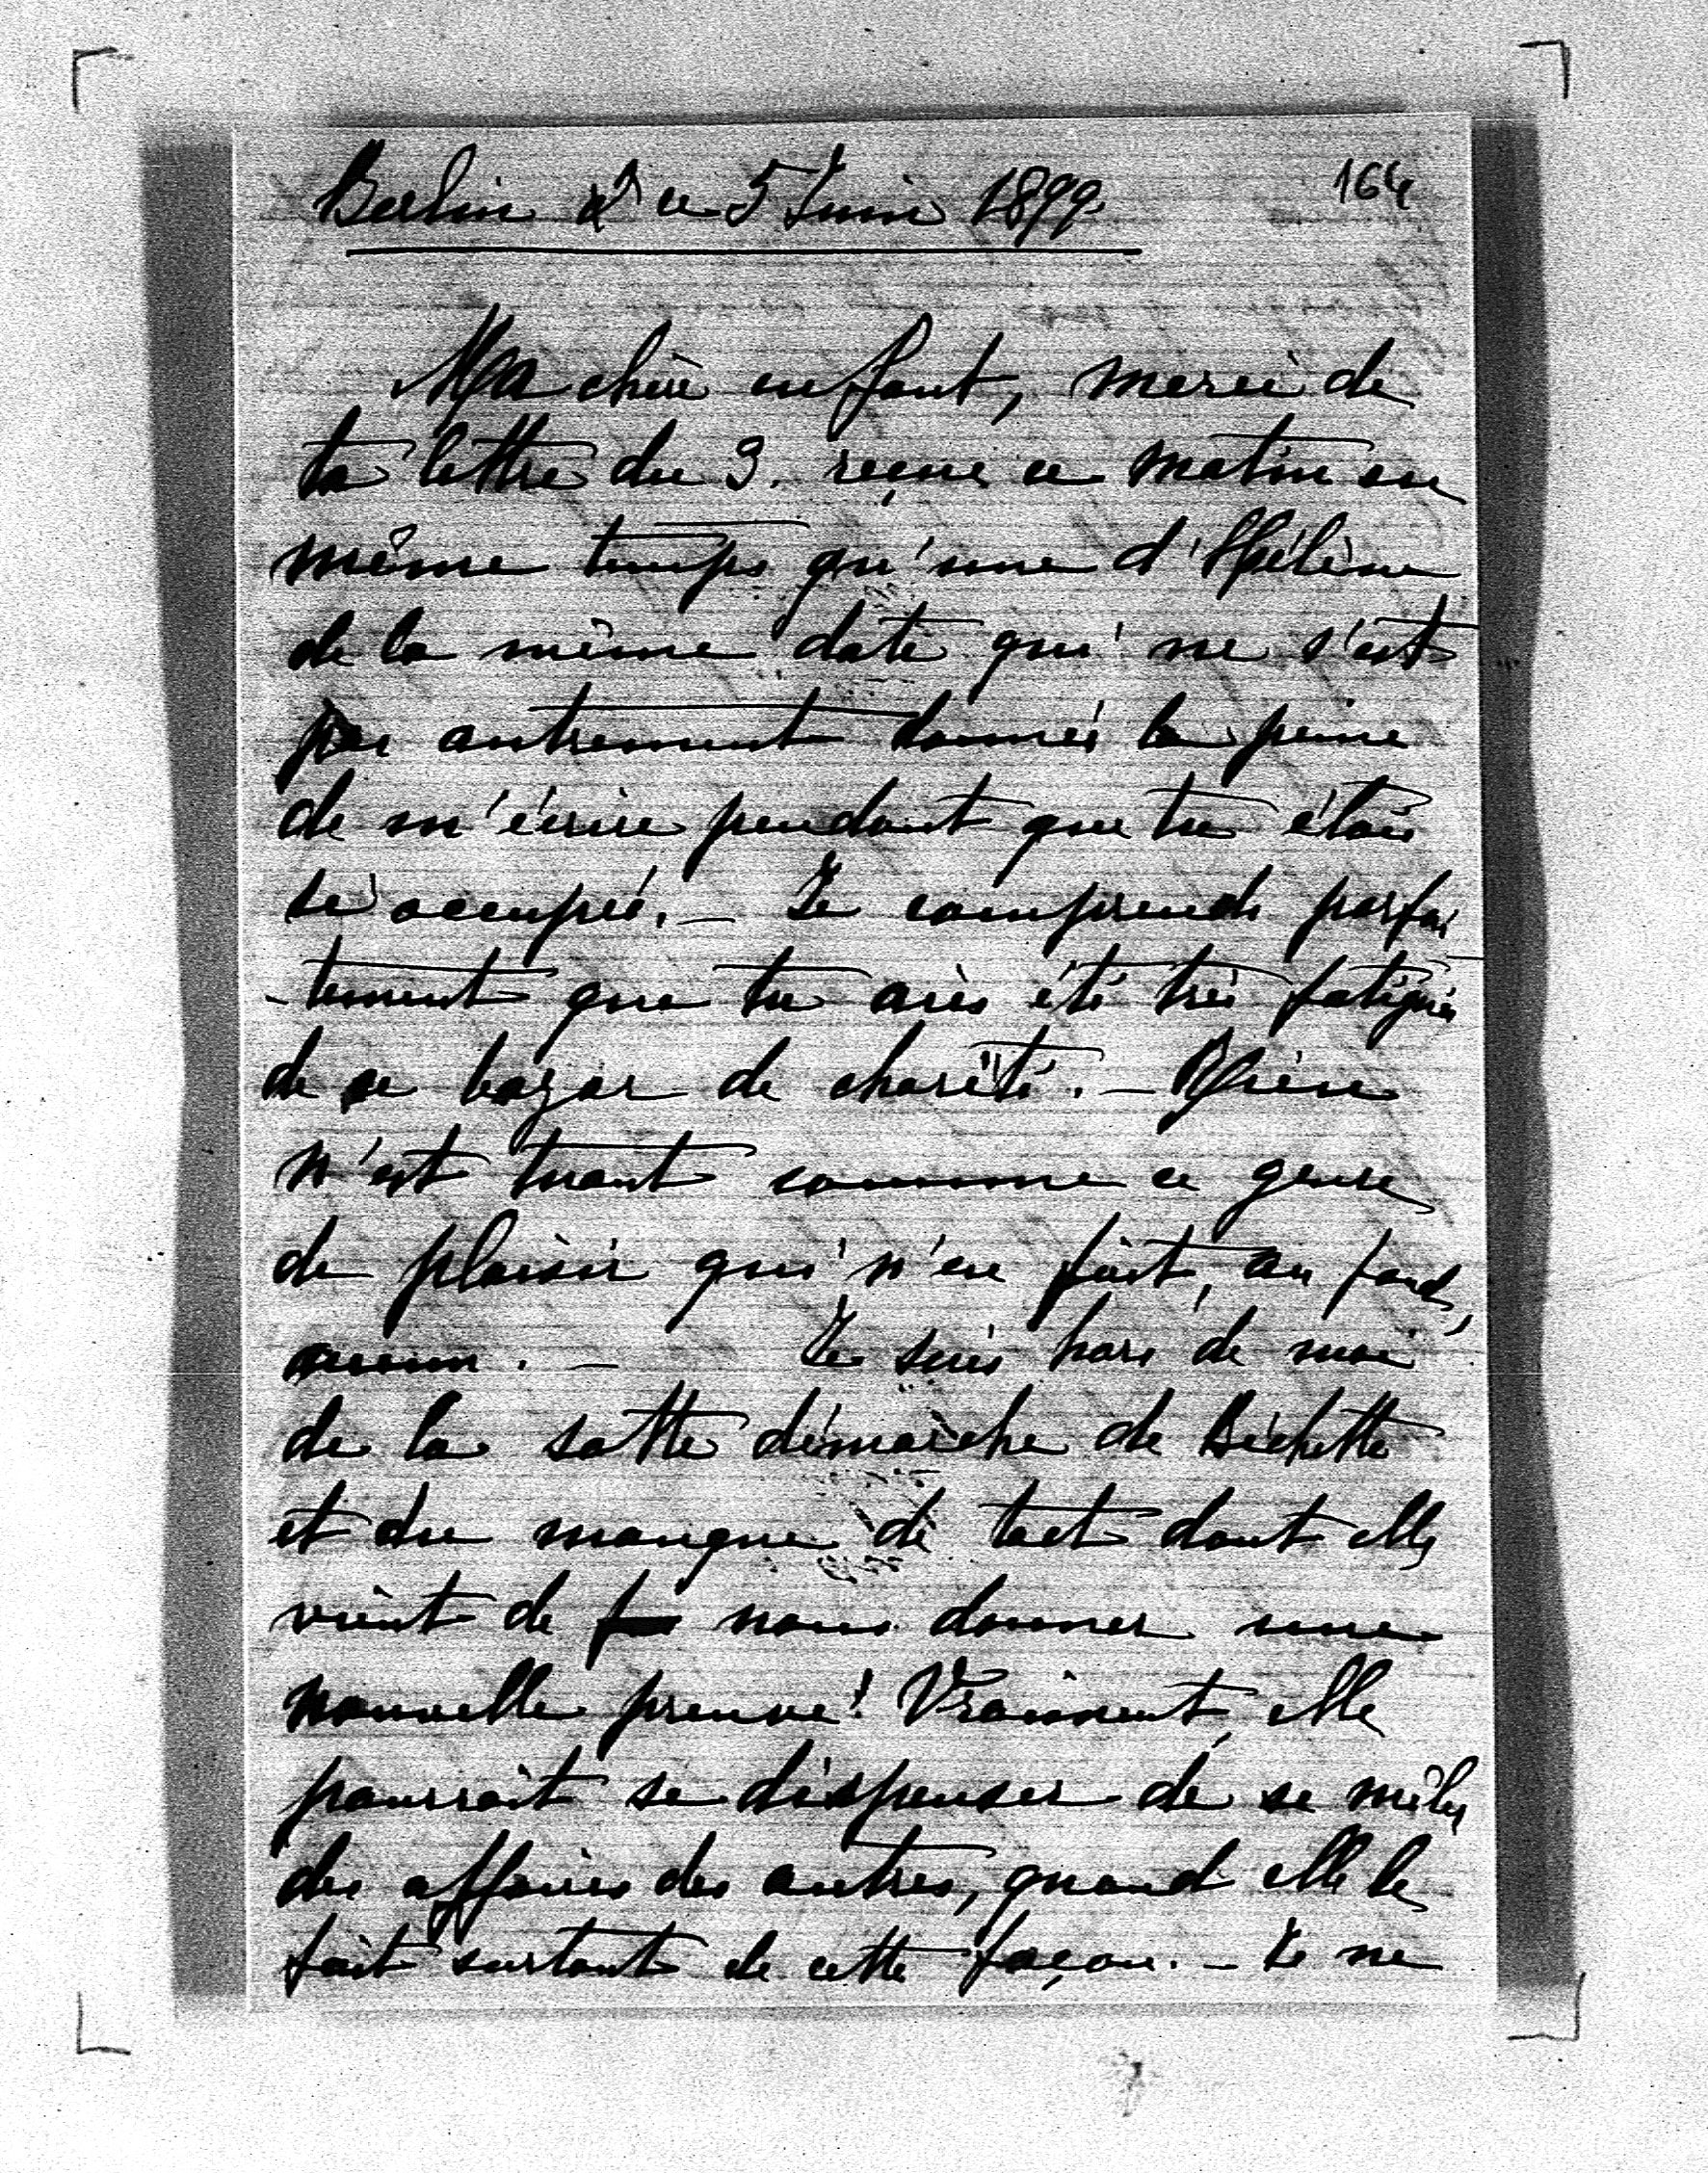 Berlin ce 5 Juin 1899.
164
Ma chère enfant, merci de
ta lettre du 3. reçue ce matin en
même temps qu'une d'Hélène
de la même date qui ne s'est
pas autrement donnée la peine
de m'écrire pendant que tu étais
si occupée. — Je comprends parfai
-tement que tu aies été très fatiguée
de ce bazar de charité. — Rien
n'est tuant comme ce genre
de plaisir qui n'en fait, au fond,
aucun. — Je suis hors de moi
de la sotte démarche de Bichette
et du manque de tact dont elle
vient de nous donner une
nouvelle preuve! Vraiment, elle
pourrait se dispenser de se mêler
des affaires des autres, quand elle le
fait surtout de cette façon. — Je ne